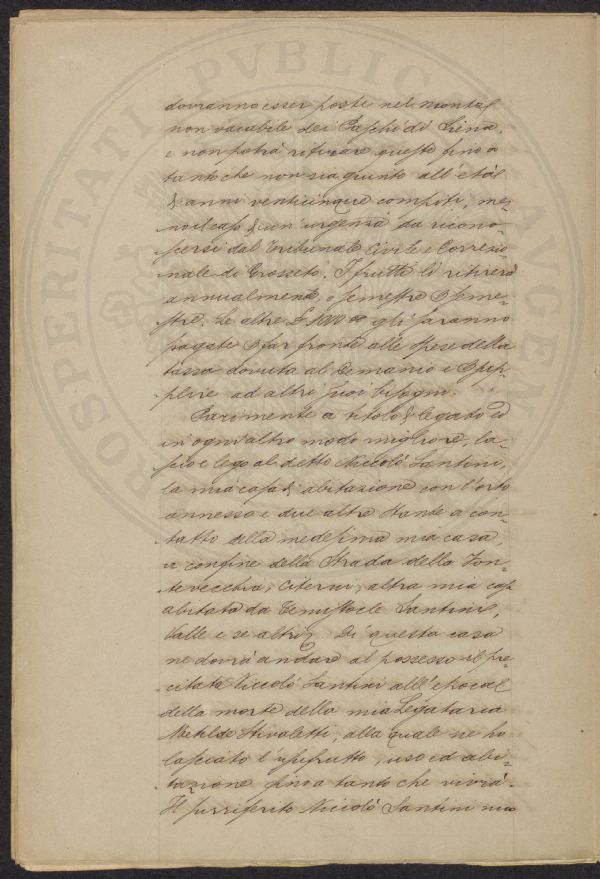 dovranno esser poste nel monte
non vacabile dei Paschi di Siena,
e non potrà ritirare queste fino a
tanto che non sia giunto all'età
di anni venticinque compiti, me-
no il caso di un'urgenza da ricono-
scersi dal Tribunale Civile e Correzio-
nale di Grosseto. I frutti li ritirerà
annualmente, o semestre semes-
tre. Le altre £ gli saranno
pagate far fronte alle spese della
tassa dovuta al Demanio e sup-
plire ad altri suoi bisogni.
Parimente a titolo di legato ed
in ogni altro modo migliore, la-
scio e lego al detto Niccolò Santini,
la mia casa di abitazione con l'orto
annesso e due altre stanze a con-
tatto della medesima mia casa,
a confine della Strada della Fon-
tevecchia, Citerni, altra mia casa
abitata da Temistocle Santini,
Valle e se altri. Di questa casa
ne dovrà andare al possesso il pre-
citato Niccolò Santini all'epoca
della morte della mia Legataria
Metilde Stivaletti, alla quale ne ho
lasciato l'usufrutto, uso ed abi-
tazione fino a tanto che vivrà.
Il surriferito Niccolò Santini mio
PROSPERITATI PVBLICAE AVGENDAE